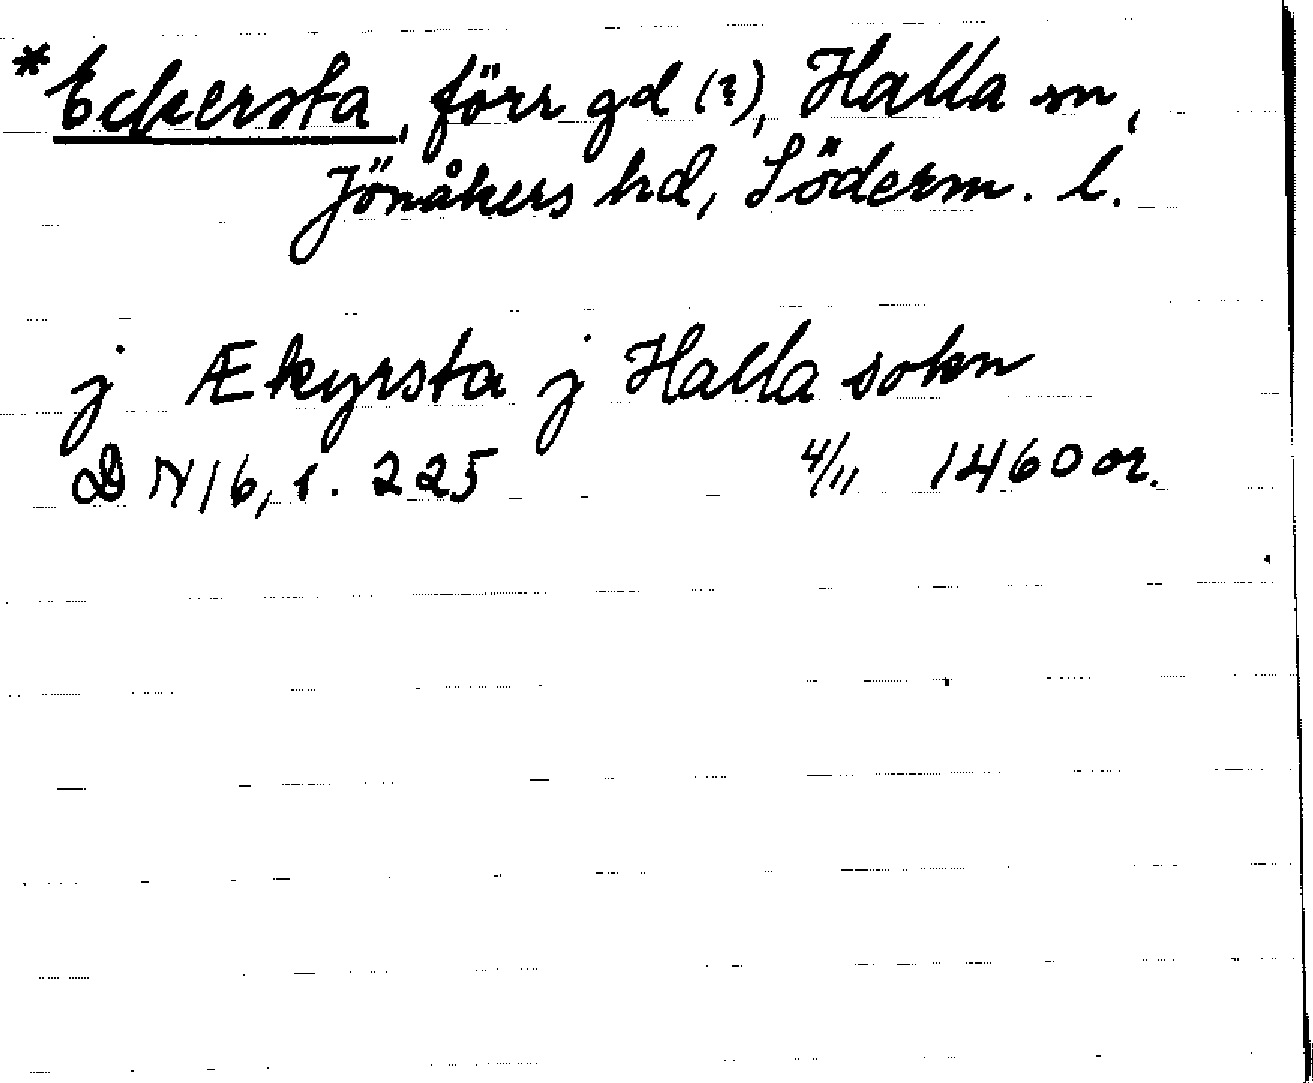 *Eckersta, förr gd (?), Halla sn,
Jönåkers hd, Söderm. l.
j Ækyrsta j Halla sokn
D N 16, s. 225 4/11 1460 or.